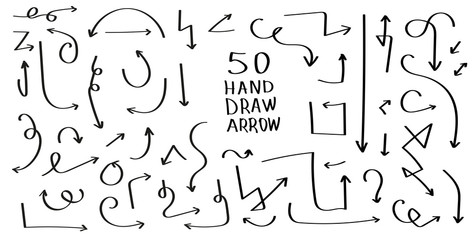 50
HAND
DRAW
ARROW